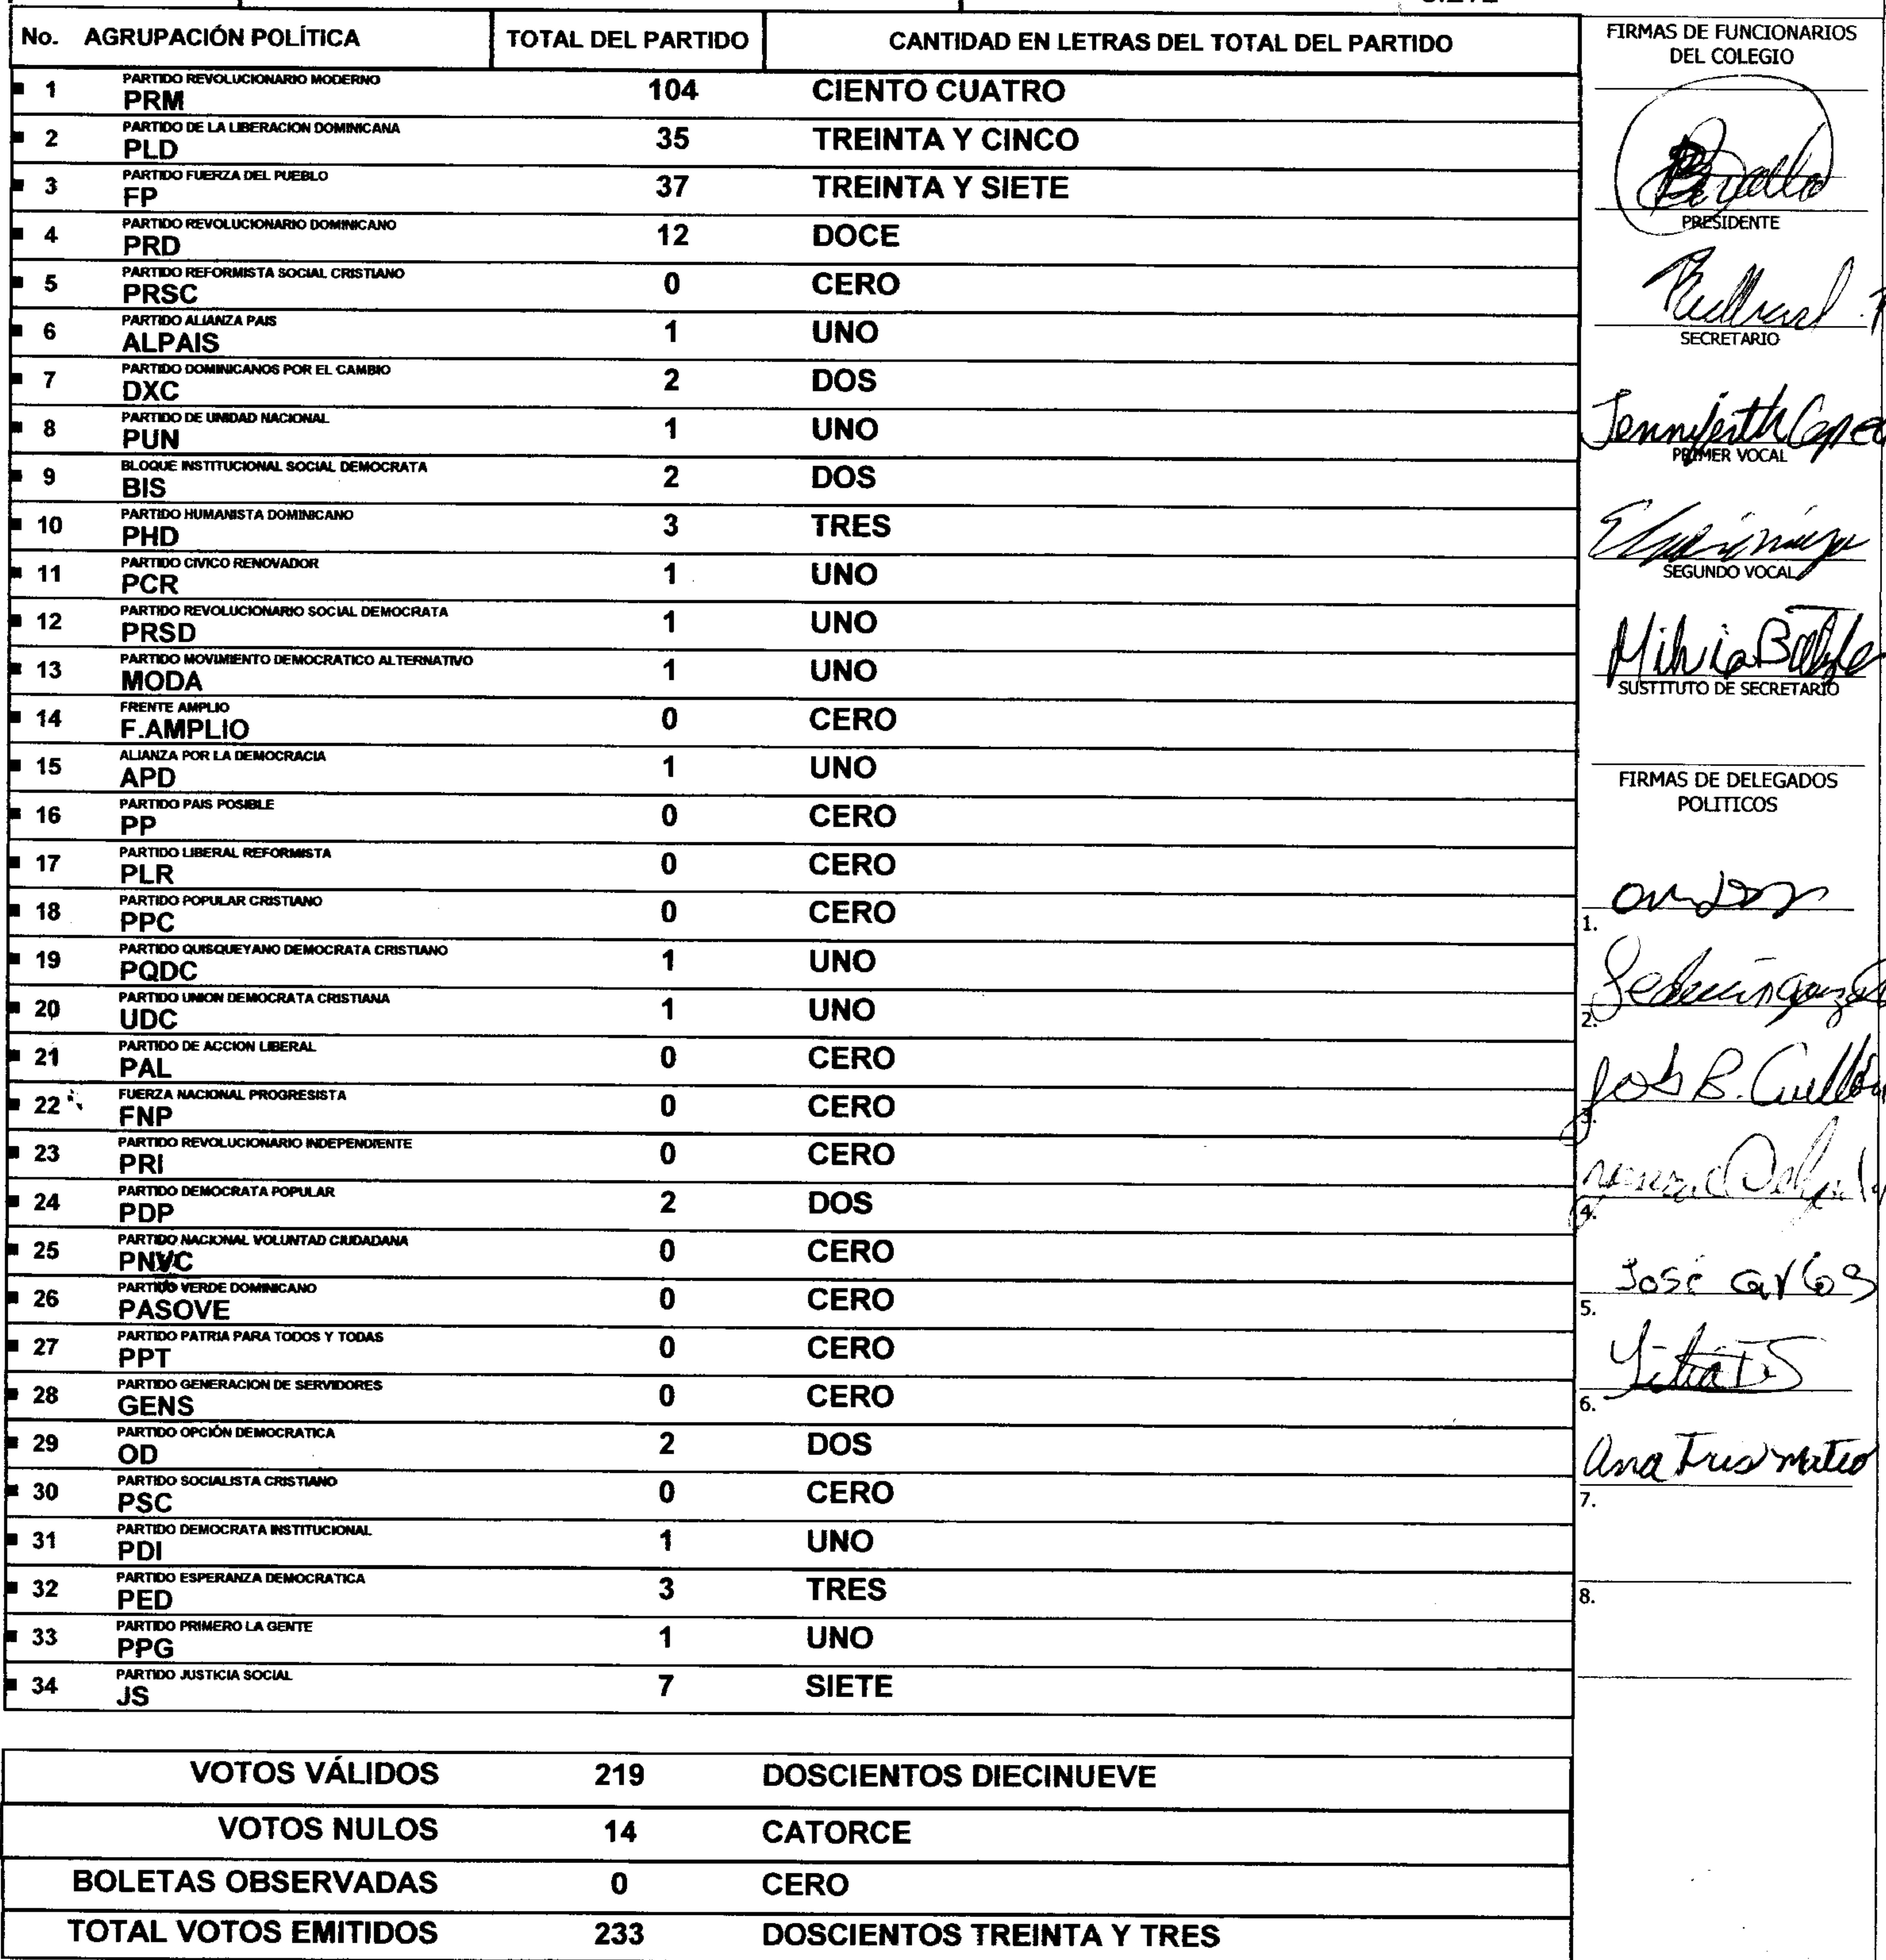 No. AGRUPACIÓN POLÍTICA TOTAL DEL PARTIDO CANTIDAD EN LETRAS DEL TOTAL DEL PARTIDO
1 PARTIDO REVOLUCIONARIO MODERNO
PRM 104 CIENTO CUATRO
2 PARTIDO DE LA LIBERACION DOMINICANA
PLD 35 TREINTA Y CINCO
3 PARTIDO FUERZA DEL PUEBLO
FP 37 TREINTA Y SIETE
4 PARTIDO REVOLUCIONARIO DOMINICANO
PRD 12 DOCE
5 PARTIDO REFORMISTA SOCIAL CRISTIANO
PRSC 0 CERO
6 PARTIDO ALIANZA PAIS
ALPAIS 1 UNO
7 PARTIDO DOMINICANOS POR EL CAMBIO
DXC 2 DOS
8 PARTIDO DE UNIDAD NACIONAL
PUN 1 UNO
9 BLOQUE INSTITUCIONAL SOCIAL DEMOCRATA
BIS 2 DOS
10 PARTIDO HUMANISTA DOMINICANO
PHD 3 TRES
11 PARTIDO CIVICO RENOVADOR
PCR 1 UNO
12 PARTIDO REVOLUCIONARIO SOCIAL DEMOCRATA
PRSD 1 UNO
13 PARTIDO MOVIMIENTO DEMOCRATICO ALTERNATIVO
MODA 1 UNO
14 FRENTE AMPLIO
F.AMPLIO 0 CERO
15 ALIANZA POR LA DEMOCRACIA
APD 1 UNO
16 PARTIDO PAIS POSIBLE
PP 0 CERO
17 PARTIDO LIBERAL REFORMISTA
PLR 0 CERO
18 PARTIDO POPULAR CRISTIANO
PPC 0 CERO
19 PARTIDO QUISQUEYANO DEMOCRATA CRISTIANO
PQDC 1 UNO
20 PARTIDO UNION DEMOCRATA CRISTIANA
UDC 1 UNO
21 PARTIDO DE ACCION LIBERAL
PAL 0 CERO
22 FUERZA NACIONAL PROGRESISTA
FNP 0 CERO
23 PARTIDO REVOLUCIONARIO INDEPENDIENTE
PRI 0 CERO
24 PARTIDO DEMOCRATA POPULAR
PDP 2 DOS
25 PARTIDO NACIONAL VOLUNTAD CIUDADANA
PNVC 0 CERO
26 PARTIDO VERDE DOMINICANO
PASOVE 0 CERO
27 PARTIDO PATRIA PARA TODOS Y TODAS
PPT 0 CERO
28 PARTIDO GENERACION DE SERVIDORES
GENS 0 CERO
29 PARTIDO OPCIÓN DEMOCRATICA
OD 2 DOS
30 PARTIDO SOCIALISTA CRISTIANO
PSC 0 CERO
31 PARTIDO DEMOCRATA INSTITUCIONAL
PDI 1 UNO
32 PARTIDO ESPERANZA DEMOCRATICA
PED 3 TRES
33 PARTIDO PRIMERO LA GENTE
PPG 1 UNO
34 PARTIDO JUSTICIA SOCIAL
JS 7 SIETE
VOTOS VÁLIDOS 219 DOSCIENTOS DIECINUEVE
VOTOS NULOS 14 CATORCE
BOLETAS OBSERVADAS 0 CERO
TOTAL VOTOS EMITIDOS 233 DOSCIENTOS TREINTA Y TRES
FIRMAS DE FUNCIONARIOS
DEL COLEGIO
PRESIDENTE
SECRETARIO
PRIMER VOCAL
SEGUNDO VOCAL
SUSTITUTO DE SECRETARIO
FIRMAS DE DELEGADOS
POLITICOS
1.
2.
3.
B.
4.
José Carlos
5.
6.
Ana Iris Mateo
7.
8.